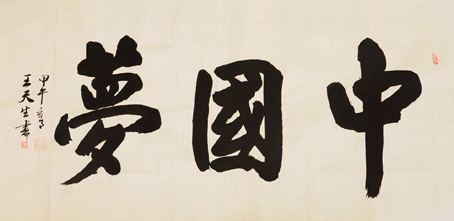 中國夢
甲午
王天生書